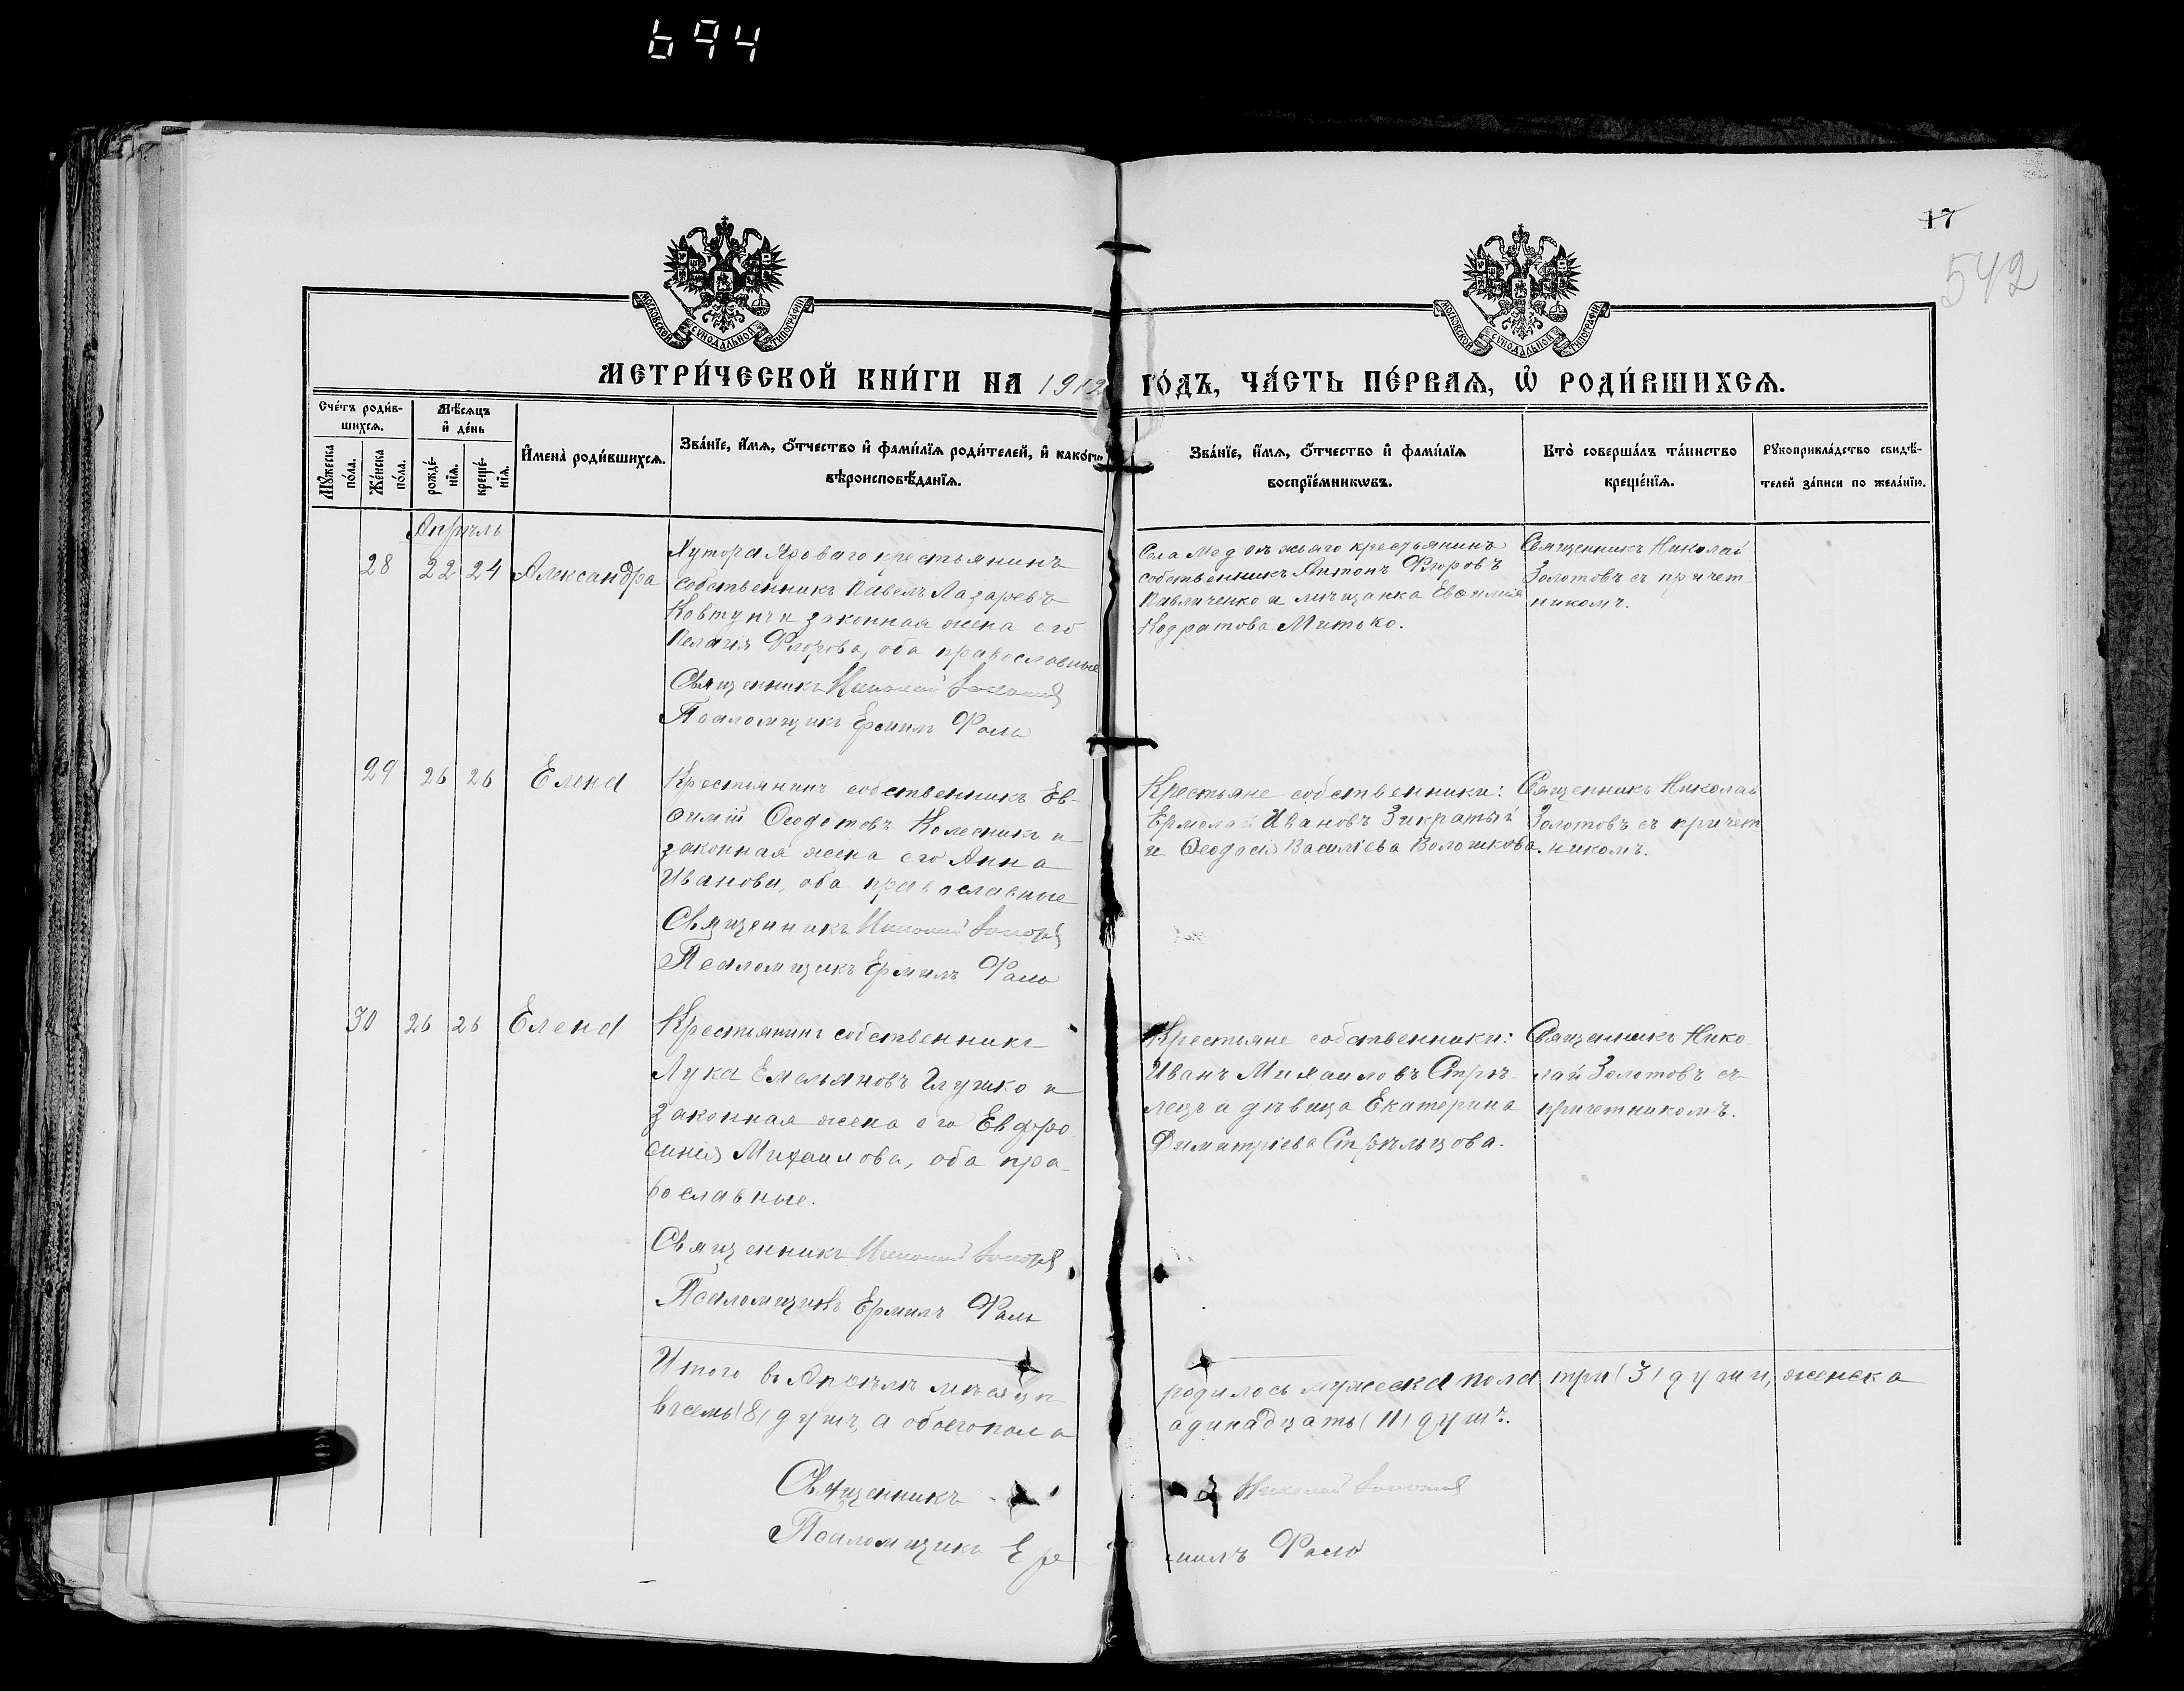 694
17
542
МОСКОВСКОЙ СѴНОДАЛЬНОЙ ТИПОГРАФІИ
МОСКОВСКОЙ СѴНОДАЛЬНОЙ ТИПОГРАФІИ
МЕТРИ́ЧЕСКОЙ КНИ́ГИ НА 1912 ГО́ДЪ, ЧА́СТЬ ПЕ́РВАѦ, Ѡ҆ РОДИ́ВШИХСѦ.
Сче́тъ роди́в-
шихсѧ.
Мꙋ́жеска по́ла.
Же́нска по́ла.
Мѣ́сѧцъ
и҆ де́нь
рожде́-
нїѧ.
креще́-
нїѧ.
И҆мена̀ роди́вшихсѧ.
Зва́нїе, и҆́мѧ, ѻ҆́тчество и҆ фами́лїѧ роди́телей, и҆ како́гѡ
вѣроисповѣ́данїѧ.
Зва́нїе, и҆́мѧ, ѻ҆́тчество и҆ фами́лїѧ
воспрїе́мникѡвъ.
Кто̀ соверша́лъ та́инство
креще́нїѧ.
Рꙋкоприкла́дство свидѣ́-
телей за́писи по жела́нїю.
Апрѣль
28 22 24 Александра
Хутора Яроваго крестьянинъ
собственникъ Павелъ Лазаревъ
Ковтунъ и законная жена его
Пелагія Флорова, оба православные
Священникъ Николай Золотовъ
Псаломщикъ Ермилъ Фаль
Села Медвѣжьяго крестьянинъ
собственникъ Антонъ Флоровъ
Павличенко и мѣщанка Евѳимія
Кодратова Митько.
Священникъ Николай
Золотовъ съ причет
никомъ.
29 26 26 Елена
Крестьянинъ собственникъ Ев-
ѳимій Ѳеодотовъ Колесникъ и
законная жена его Анна
Иванова, оба православные
Священникъ Николай Золотовъ
Псаломщикъ Ермилъ Фаль
Крестьяне собственники:
Ермолай Ивановъ Зикратый
и Ѳеодосія Василіева Волошкова.
Священникъ Николай
Золотовъ съ причет
никомъ.
30 26 26 Елена
Крестьянинъ собственникъ
Лука Емельяновъ Глушко и
законная жена его Евфро
синія Михаилова, оба пра-
вославные.
Священникъ Николай Золотовъ
Псаломщикъ Ермилъ Фаль
Крестьяне собственники:
Иванъ Михаиловъ Стрѣ-
лецъ и дѣвица Екатерина
Димитріева Стрѣльцова.
Священникъ Нико-
лай Золотовъ съ
причетникомъ.
Итого въ Апрѣлѣ мѣсяцѣ родилось мужеска пола три (3) души, женска
восемь (8) душъ, а обоего пола адинадцать (11) душъ.
Священникъ Николай Золотовъ
Псаломщикъ Ермилъ Фаль